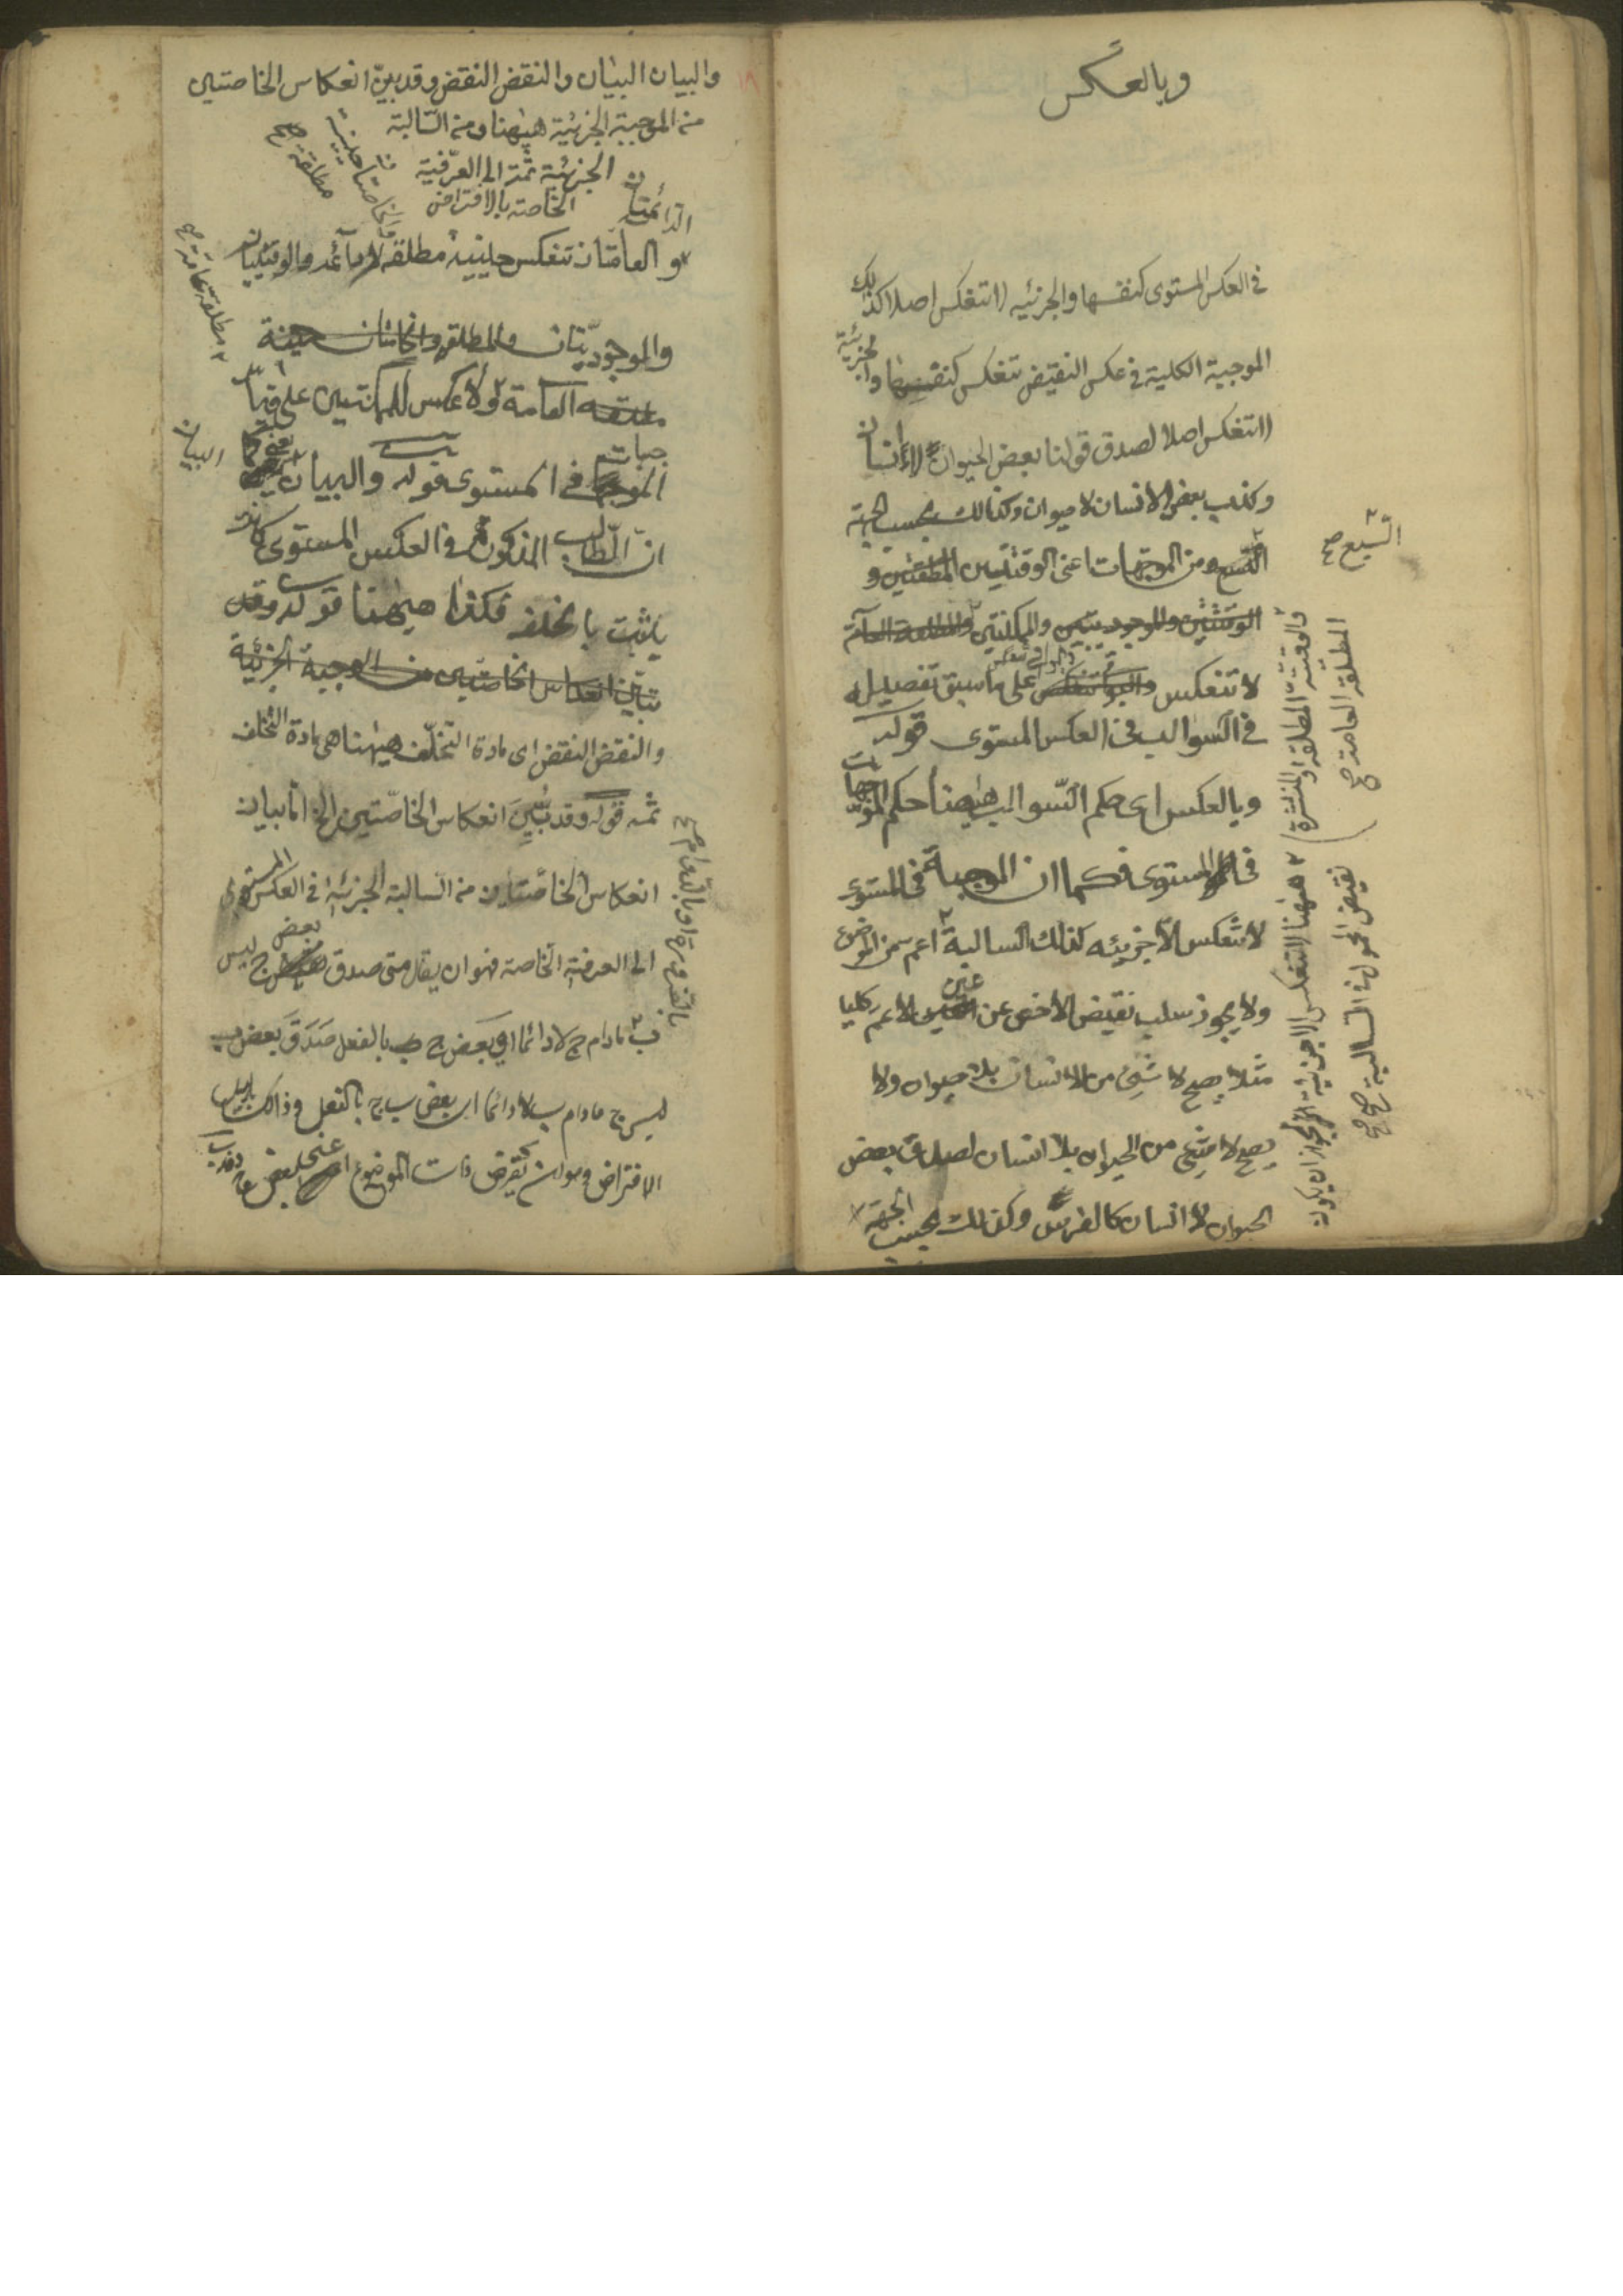 وبالعكس
في العكس المستوى كنفسها والجزئيه لا تنعكس اصلا كذلك
الموجبة الكلية في عكس النقيض تنعكس كنفسها والجزئية
لا تنعكس اصلا لصدق قولنا بعض الحيوان لا انسان
وكذب بعض الانسان لا حيوان وكذلك بحسب الجهة
التسع من الموجهات اعنى الوقتيتين المطلقتين و
الوقتيتين والوجوديتين والممكنتين والمطلقة العامة
لا تنعكس والبواقي تنعكس على ما سبق تفصيله
في السوالب في العكس المستوى قوله
وبالعكس اى حكم السوالب ههنا حكم الموجبات
في المستوى فكما ان الموجبة في المستوى
لا تنعكس الا جزئيه كذلك السالبة اعم من الموضوع
ولا يجوز سلب نقيض الاخص عن عين الاعم كليا
مثلا يصح لا شئ من الانسان بلا حيوان ولا
يصح لا شئ من الحيوان بلا انسان لصدق بعض
الحيوان لا انسان كالفرس وكذلك بحسب الجهة
التسع صح
والوقتية المطلقة والمنتشرة
المطلقة العامة صح
ههنا لا تنعكس الا جزئية لجواز ان يكون
نقيض المحمول في السالبة صح
والبيان البيان والنقض النقض وقد بين انعكاس الخاصتين
من الموجبة الجزئية ههنا ومن السالبة
الجزئية ثمة الى العرفية
الخاصة بالافتراض
الدائمتان
والعامتان تنعكس حينية مطلقه لا دائمه والوقتيتان
والخاصتان حينية
مطلقة صح
مطلقة عامة صح
والوجوديتان والمطلقة والخاصتان حينية
مطلقه العامة ولا عكس للممكنتين على قياس
الموجبات في المستوى قوله والبيان البيان يعنى كما
ان المطالب المذكورة في العكس المستوى كانت
يثبت بالخلف فكذا ههنا قوله وقد
تبين انعكاس الخاصتين من الموجبة الجزئية
والنقض النقض اى مادة التخلف ههنا هى مادة التخلف
ثمه قوله وقد بين انعكاس الخاصتين الخ اما بيان
انعكاس الخاصتان من السالبة الجزئيه في العكس المستوى
الى العرفية الخاصة فهو ان يقال متى صدق بعض ج ليس
ب مادام ج لا دائما اى بعض ج ب بالفعل صدق بعض ب
ليس ج مادام ب لا دائما اى بعض ب ج بالفعل وذلك بدليل
الافتراض وهو ان تفرض ذات الموضوع اعنى بعض ج د فد ب
بالضرورة او بالدوام صح